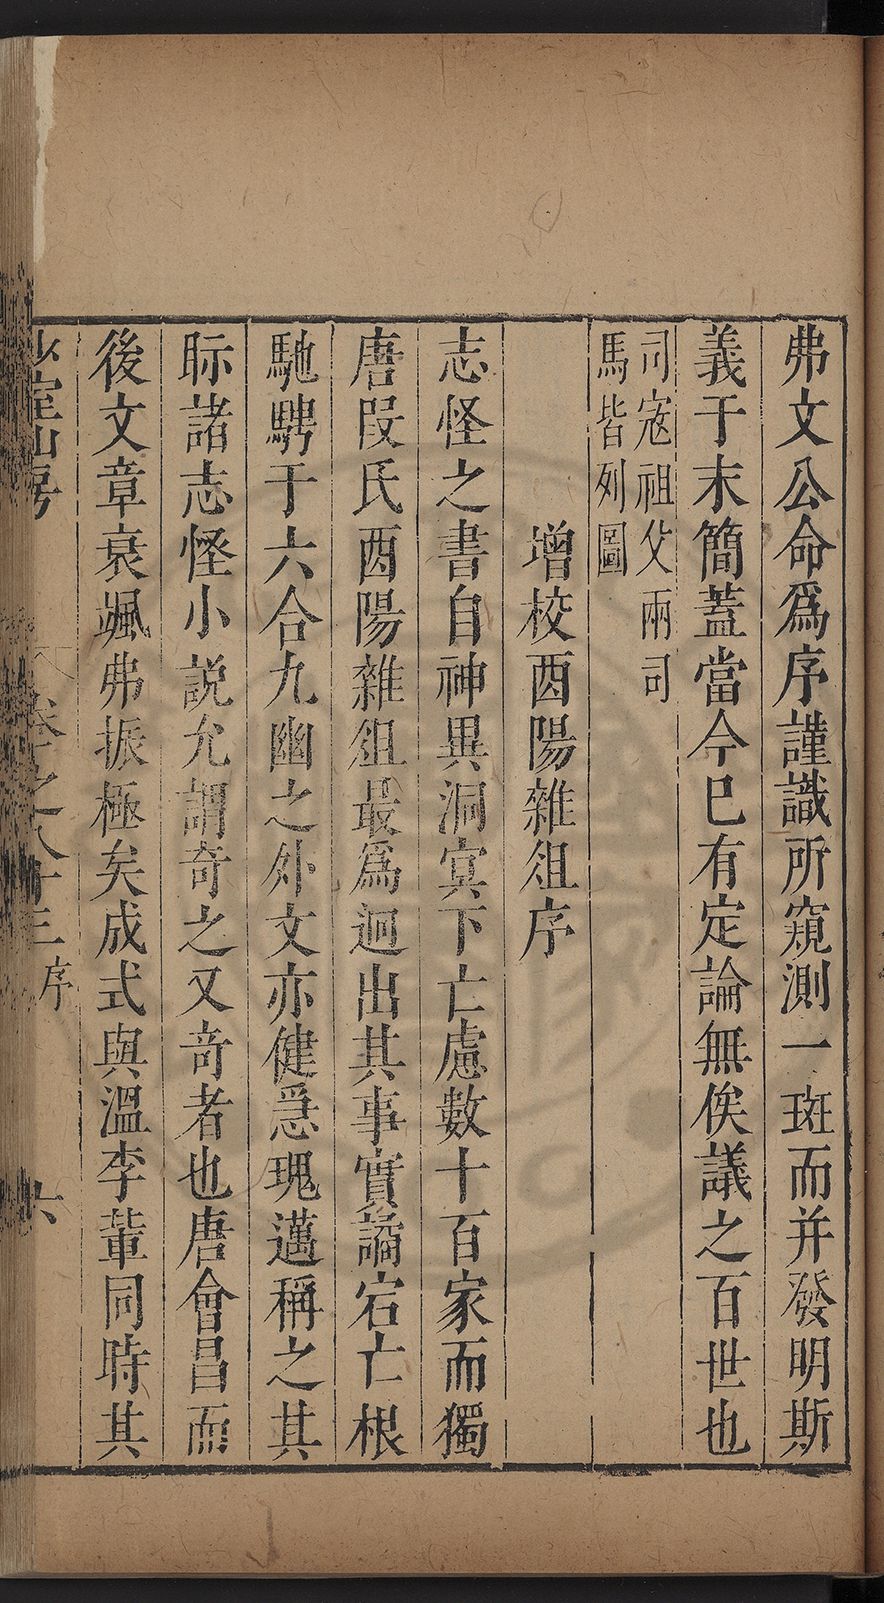 弗文公命爲序謹識所窺測一斑而并發明斯
義于末簡蓋當今巳有定論無俟議之百世也
司寇祖父兩司
馬皆列圖
增校酉陽雜俎序
志怪之書自神異洞冥下亡慮數十百家而獨
唐段氏酉陽雜俎最爲迥出其事實譎宕亡根
馳騁于六合九幽之外文亦健急瑰邁稱之其
眎諸志怪小説允謂奇之又奇者也唐會昌而
後文章衰颯弗振極矣成式與溫李輩同時其
少室山房
卷之八十三 序
六